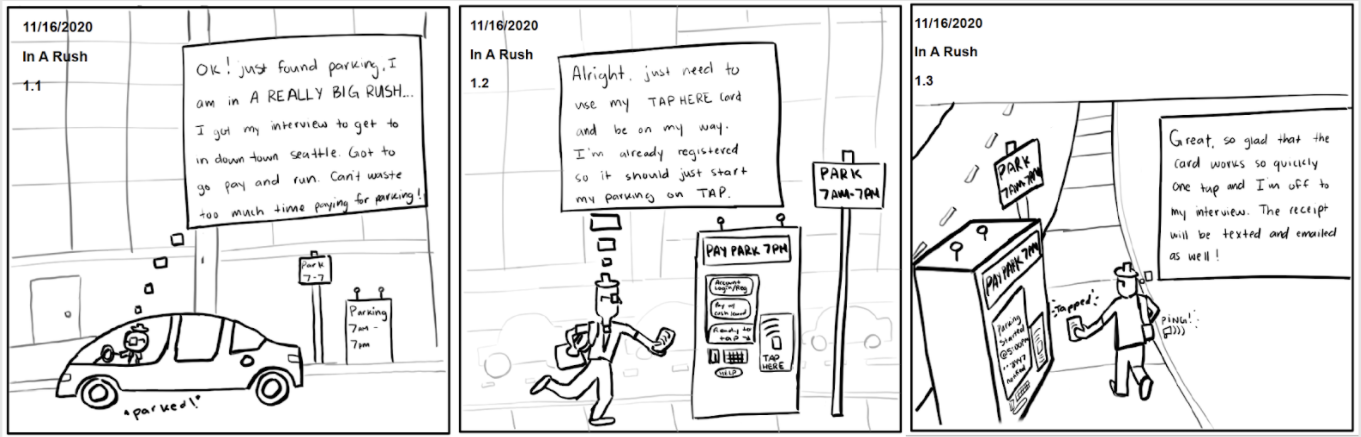 11/16/2020
In A Rush
1.1
OK! just found parking. I
am in A REALLY BIG RUSH...
I got my interview to get to
in down town seattle. Got to
go pay and run. Can't waste
too much time paying for parking!
Park
7-7
Parking
7am -
7pm
*parked!*
11/16/2020
In A Rush
1.2
Alright, just need to
use my TAP HERE card
and be on my way.
I'm already registered
so it should just start
my parking on TAP.
PARK
7AM-7PM
PAY PARK 7PM
Account
Login/Reg
Pay w/
cash/card
Ready to
tap
TAP
HERE
HELP
11/16/2020
In A Rush
1.3
Great, so glad that the
card works so quickly
one tap and I'm off to
my interview. The receipt
will be texted and emailed
as well!
PARK
7AM-7PM
PAY PARK 7PM
Parking
Started
"Tapped"
PING!